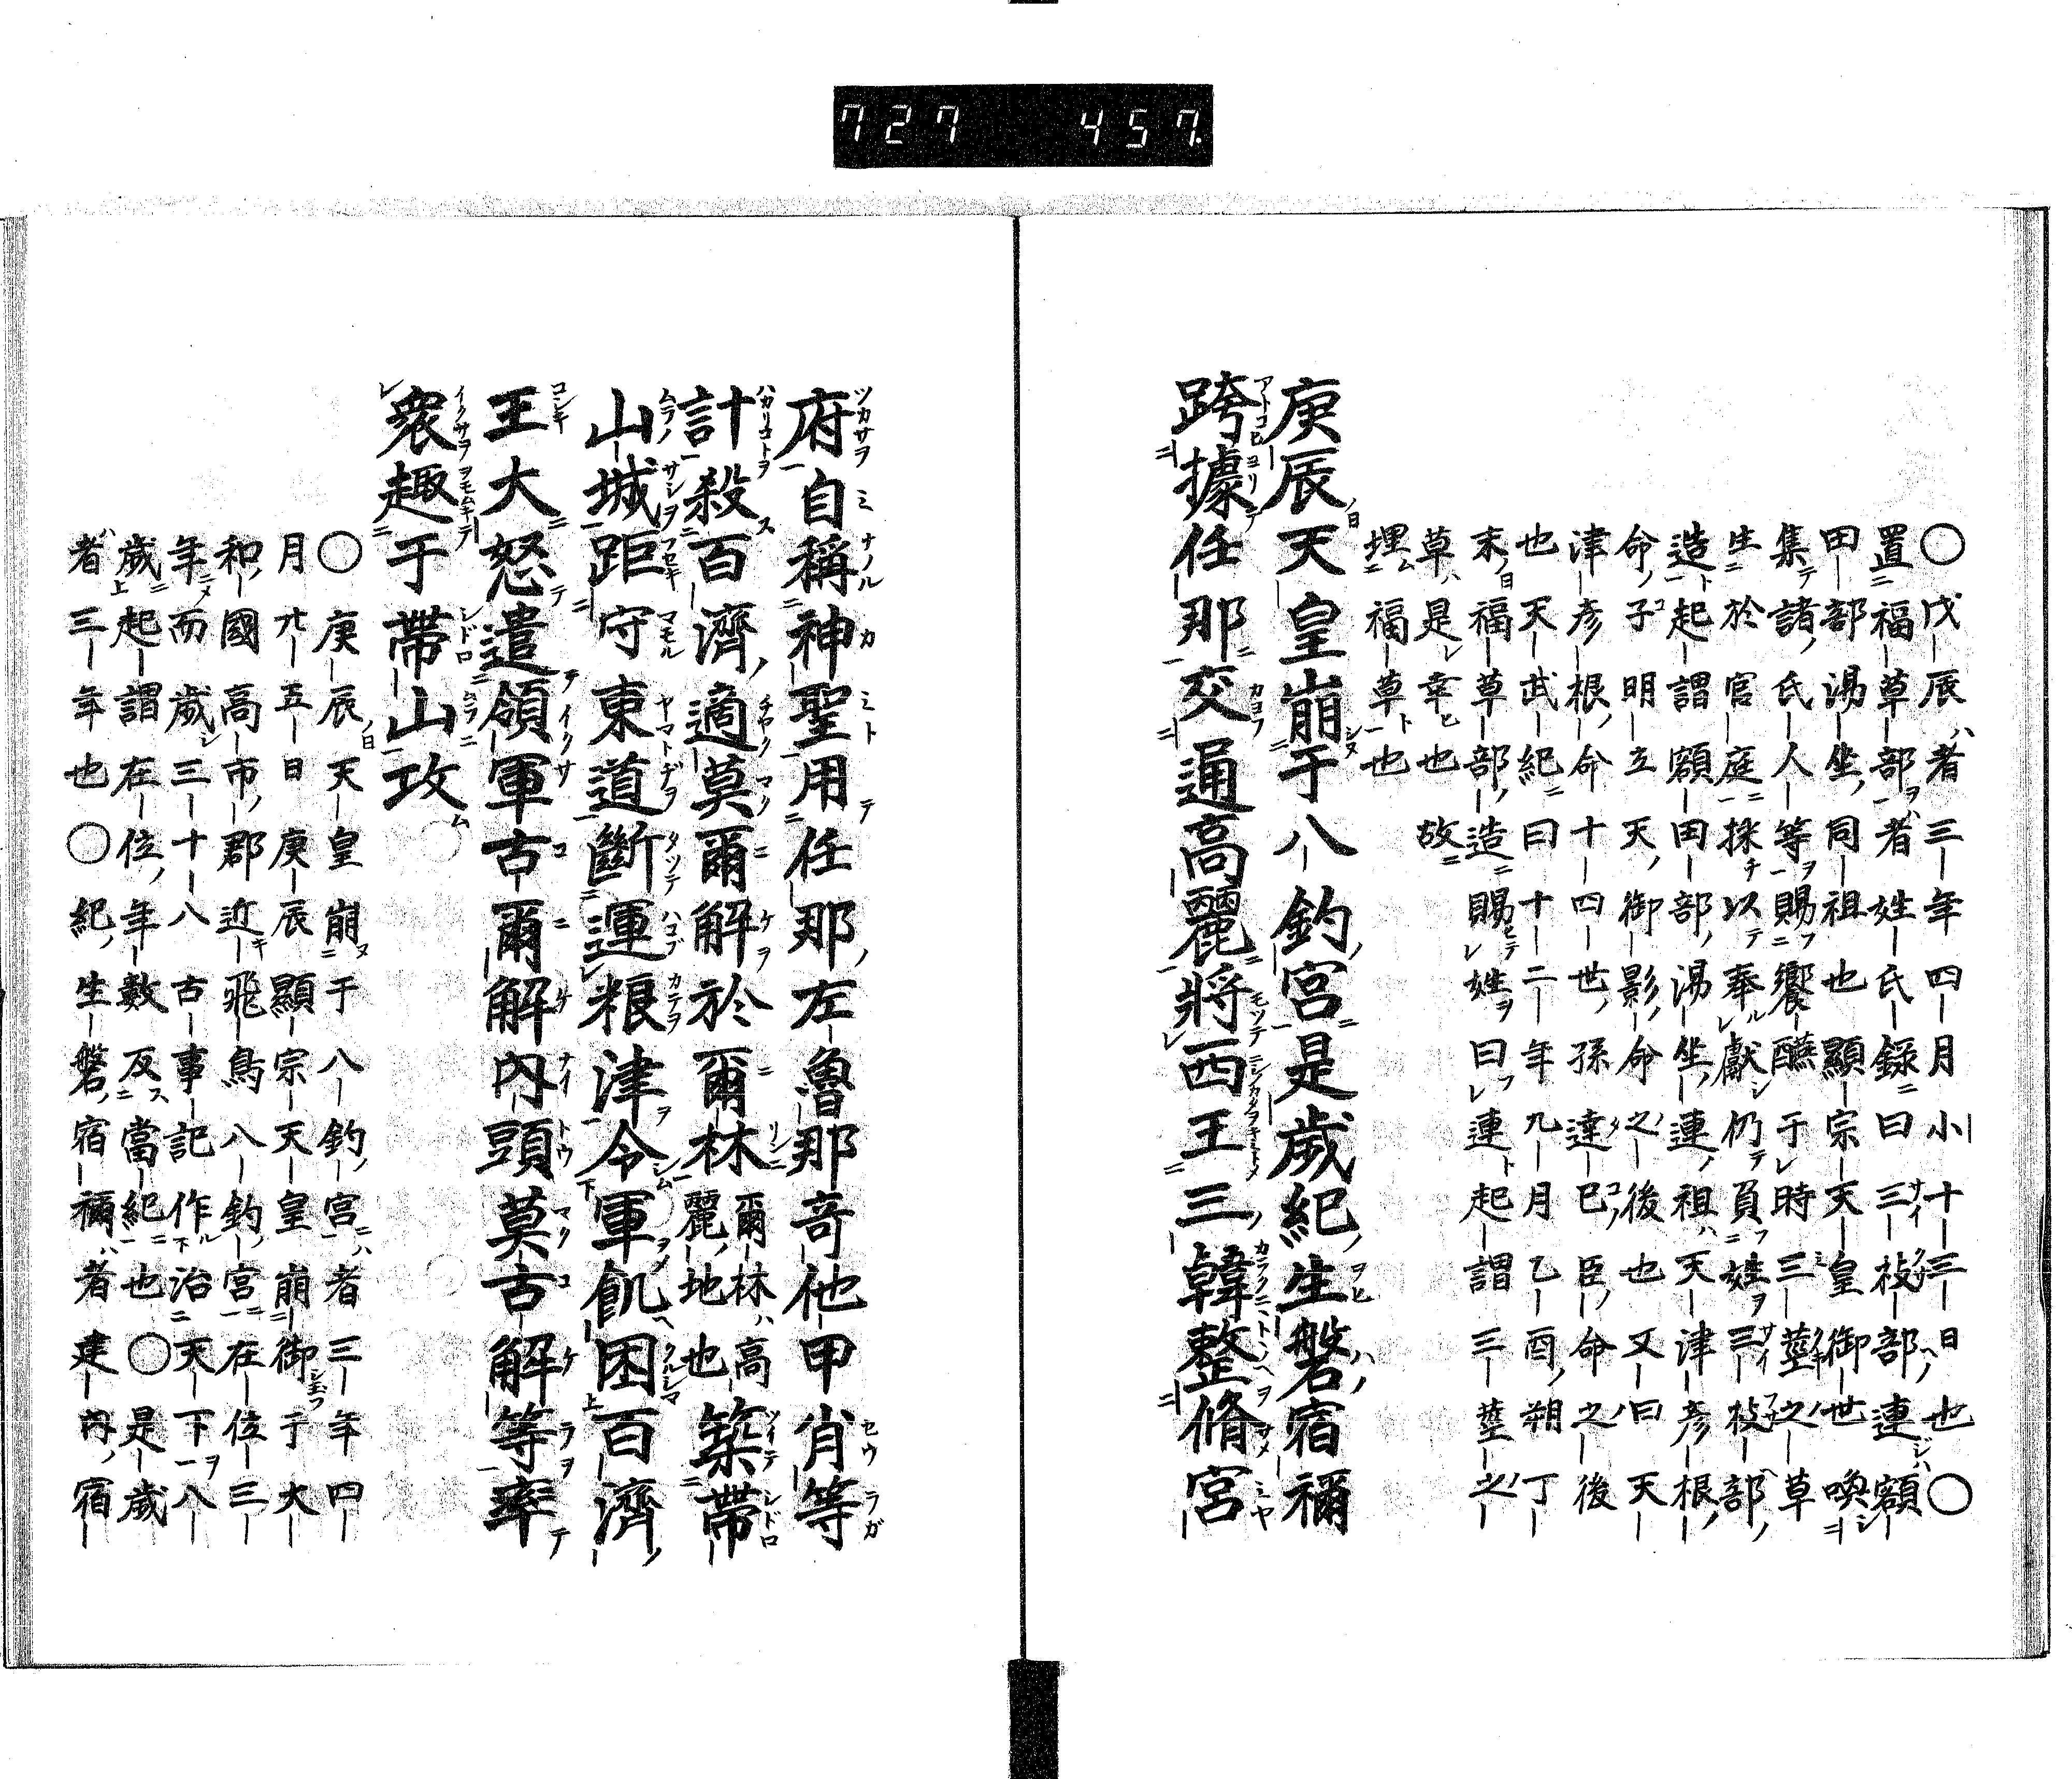 727 457.
〇戊辰者三年四月小十三日也〇
置福草部者姓氏録曰三枝部連額
田部湯坐同祖也顯宗天皇御世喚
集諸氏人等賜饗醼于時三莖之草
生於官庭採以奉獻仍負姓三枝部
造起謂額田部湯坐連祖天津彦根
命子明立天御影命之後也又曰天
津彦根命十四世孫達己臣命之後
也天武紀曰十二年九月乙酉朔丁
末福草部造賜姓曰連起謂三莖之
草是幸也故
埋福草也
庚辰天皇崩于八釣宮是歲紀生磐宿禰
跨據任那交通高麗將西王三韓整脩宮
府自稱神聖用任那左魯那奇他甲肖等
計殺百濟適莫爾解於爾林爾林高麗地也築帶
山城距守東道斷運粮津令軍飢困百濟
王大怒遣領軍古爾解內頭莫古解等率
衆趣于帶山攻
〇庚辰天皇崩于八釣宮者三年四
月廿五日庚辰顯宗天皇崩御于大
和國高市郡近飛鳥八釣宮在位三
年而歲三十八古事記作治天下八
歲起謂在位年數反當紀也〇是歲
者三年也〇紀生磐宿禰者建內宿